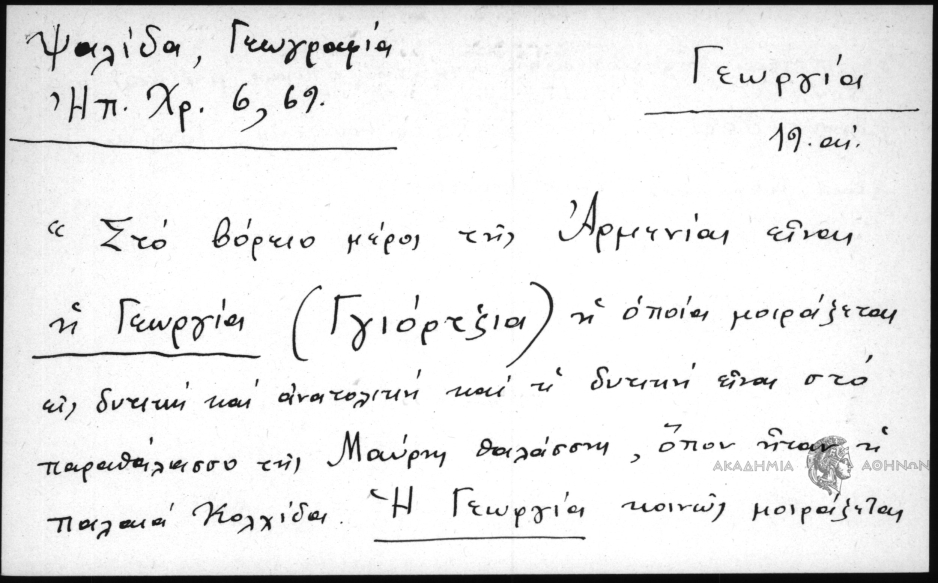 Ψαλίδα, Γεωγραφία
Ἠπ. Χρ. 6, 69.
Γεωργία
19. αἰ.
“ Στό βόρειο μέρος τῆς Ἀρμενίας εἶναι
ἡ Γεωργία (Γγιόρτζια) ἡ ὁποία μοιράζεται
εἰς δυτική καί ἀνατολική καί ἡ δυτική εἶναι στό
παραθάλασσο τῆς Μαύρης θαλάσσης, ὅπου ἦταν ἡ
παλαιά Κολχίδα. Ἡ Γεωργία κοινῶς μοιράζεται
ΑΚΑΔΗΜΙΑ ΑΘΗΝΩΝ